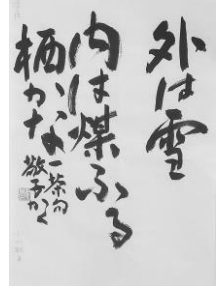 外は雪
内は煤ふる
栖かな
一茶句
敬子かく